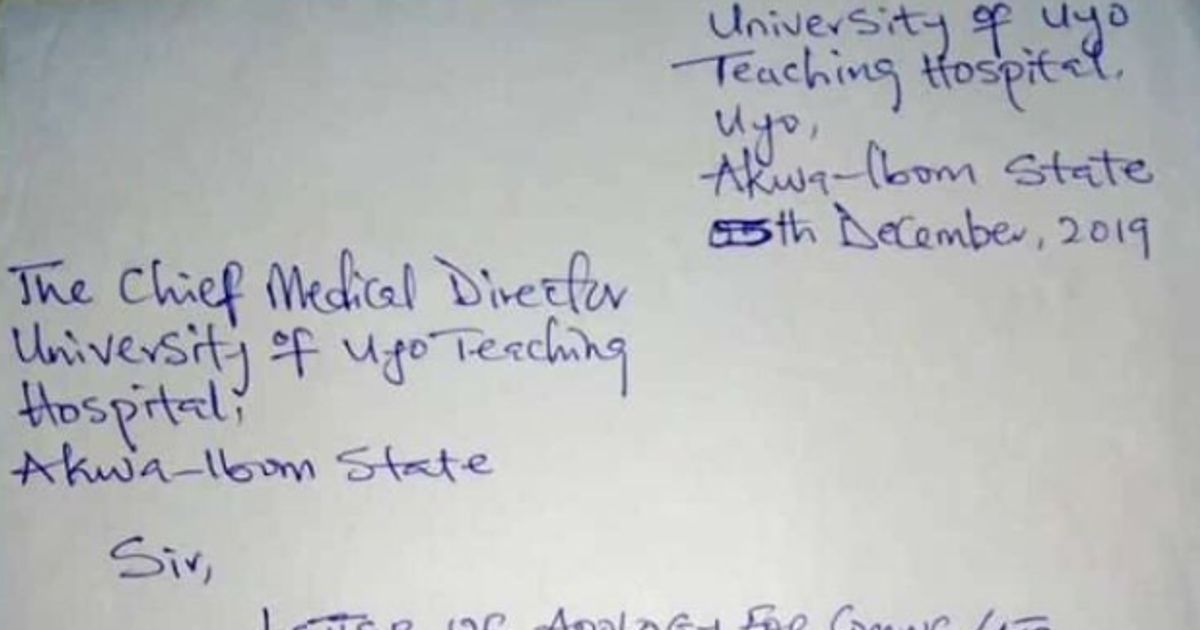 University of Uyo
Teaching Hospital,
Uyo,
Akwa-Ibom State
5th December, 2019
The Chief Medical Director
University of Uyo Teaching
Hospital,
Akwa-Ibom State
Sir,
LETTER OF APOLOGY FOR COMING LATE